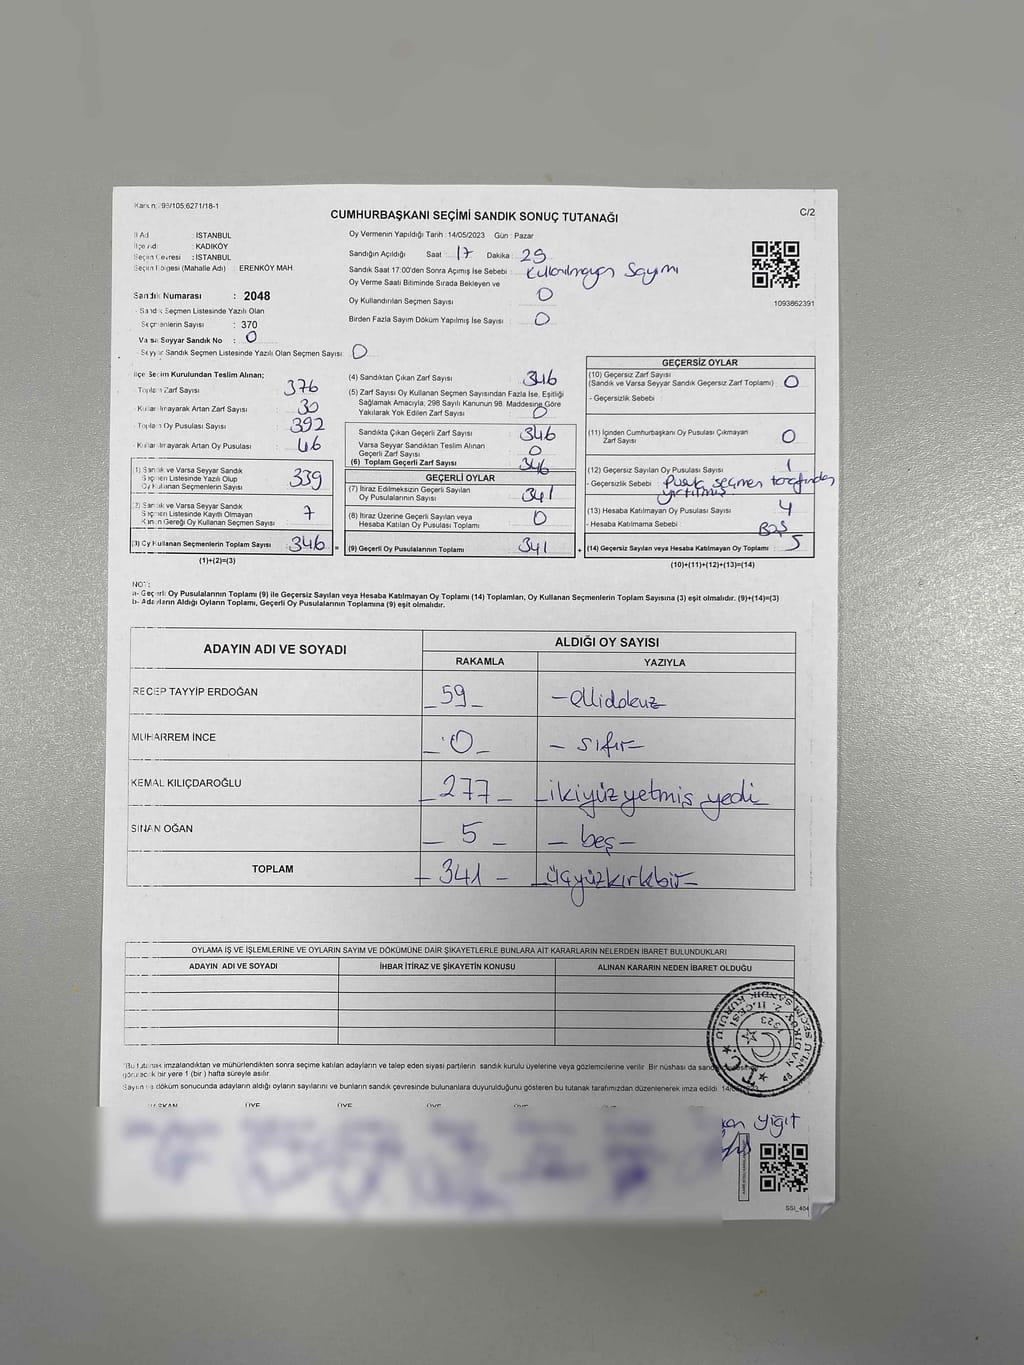 Karar n: 99/105;6271/18-1
CUMHURBAŞKANI SEÇİMİ SANDIK SONUÇ TUTANAĞI
C/2
İl Adı : İSTANBUL
İlçe Adı : KADIKÖY
Seçim Çevresi : İSTANBUL
Seçim Bölgesi (Mahalle Adı) : ERENKÖY MAH.
Sandık Numarası : 2048
Sandık Seçmen Listesinde Yazılı Olan
Seçmenlerin Sayısı : 370
Varsa Seyyar Sandık No : 0
Seyyar Sandık Seçmen Listesinde Yazılı Olan Seçmen Sayısı: 0
Oy Vermenin Yapıldığı Tarih : 14/05/2023 Gün : Pazar
Sandığın Açıldığı Saat : 17 Dakika : 29
Sandık Saat 17:00'den Sonra Açımış İse Sebebi : kullanılmayan sayımı
Oy Verme Saati Bitiminde Sırada Bekleyen ve
Oy Kullandırılan Seçmen Sayısı : 0
Birden Fazla Sayım Döküm Yapılmış İse Sayısı : 0
1093862391
İlçe Seçim Kurulundan Teslim Alınan;
- Toplam Zarf Sayısı : 376
- Kullanılmayarak Artan Zarf Sayısı : 30
- Toplam Oy Pusulası Sayısı : 392
- Kullanılmayarak Artan Oy Pusulası : 46
(1) Sandık ve Varsa Seyyar Sandık
Seçmen Listesinde Yazılı Olup
Oy Kullanan Seçmenlerin Sayısı : 339
(2) Sandık ve Varsa Seyyar Sandık
Seçmen Listesinde Kayıtlı Olmayan
Kanun Gereği Oy Kullanan Seçmen Sayısı : 7
(3) Oy Kullanan Seçmenlerin Toplam Sayısı : 346 =
(1)+(2)=(3)
(4) Sandıktan Çıkan Zarf Sayısı : 346
(5) Zarf Sayısı Oy Kullanan Seçmen Sayısından Fazla İse, Eşitliği
Sağlamak Amacıyla, 298 Sayılı Kanunun 98. Maddesine Göre
Yakılarak Yok Edilen Zarf Sayısı : 0
Sandıkta Çıkan Geçerli Zarf Sayısı : 346
Varsa Seyyar Sandıktan Teslim Alınan
Geçerli Zarf Sayısı : 0
(6) Toplam Geçerli Zarf Sayısı : 346
GEÇERLİ OYLAR
(7) İtiraz Edilmeksizin Geçerli Sayılan
Oy Pusulalarının Sayısı : 341
(8) İtiraz Üzerine Geçerli Sayılan veya
Hesaba Katılan Oy Pusulası Toplamı : 0
(9) Geçerli Oy Pusulalarının Toplamı : 341 +
GEÇERSİZ OYLAR
(10) Geçersiz Zarf Sayısı
(Sandık ve Varsa Seyyar Sandık Geçersiz Zarf Toplamı) : 0
- Geçersizlik Sebebi :
(11) İçinden Cumhurbaşkanı Oy Pusulası Çıkmayan
Zarf Sayısı : 0
(12) Geçersiz Sayılan Oy Pusulası Sayısı : 1
- Geçersizlik Sebebi : Pusula seçmen tarafından
yırtılmış
(13) Hesaba Katılmayan Oy Pusulası Sayısı : 4
- Hesaba Katılmama Sebebi : BOŞ
(14) Geçersiz Sayılan veya Hesaba Katılmayan Oy Toplamı : 5
(10)+(11)+(12)+(13)=(14)
NOT:
a- Geçerli Oy Pusulalarının Toplamı (9) ile Geçersiz Sayılan veya Hesaba Katılmayan Oy Toplamı (14) Toplamları, Oy Kullanan Seçmenlerin Toplam Sayısına (3) eşit olmalıdır. (9)+(14)=(3)
b- Adayların Aldığı Oyların Toplamı, Geçerli Oy Pusulalarının Toplamına (9) eşit olmalıdır.
ADAYIN ADI VE SOYADI
ALDIĞI OY SAYISI
RAKAMLA YAZIYLA
RECEP TAYYİP ERDOĞAN _59_ -ellidokuz
MUHARREM İNCE _0_ - sıfır-
KEMAL KILIÇDAROĞLU _277_ -ikiyüz yetmiş yedi
SİNAN OĞAN _5_ - beş -
TOPLAM -341- -üçyüzkırkbir-
OYLAMA İŞ VE İŞLEMLERİNE VE OYLARIN SAYIM VE DÖKÜMÜNE DAİR ŞİKAYETLERLE BUNLARA AİT KARARLARIN NELERDEN İBARET BULUNDUKLARI
ADAYIN ADI VE SOYADI İHBAR İTİRAZ VE ŞİKAYETİN KONUSU ALINAN KARARIN NEDEN İBARET OLDUĞU
*Bu tutanak imzalandıktan ve mühürlendikten sonra seçime katılan adayların ve talep eden siyasi partilerin sandık kurulu üyelerine veya gözlemcilerine verilir. Bir nüshası da
görülecek bir yere 1 (bir) hafta süreyle asılır.
Sayım ve döküm sonucunda adayların aldığı oyların sayılarını ve bunların sandık çevresinde bulunanlara duyurulduğunu gösteren bu tutanak tarafımızdan düzenlenerek imza edildi.
BAŞKAN ÜYE ÜYE ÜYE ÜYE ÜYE
T.C. 1923
KADIKÖY 2. İLÇESİ
SANDIK KURULU
Yiğit
SSI_404